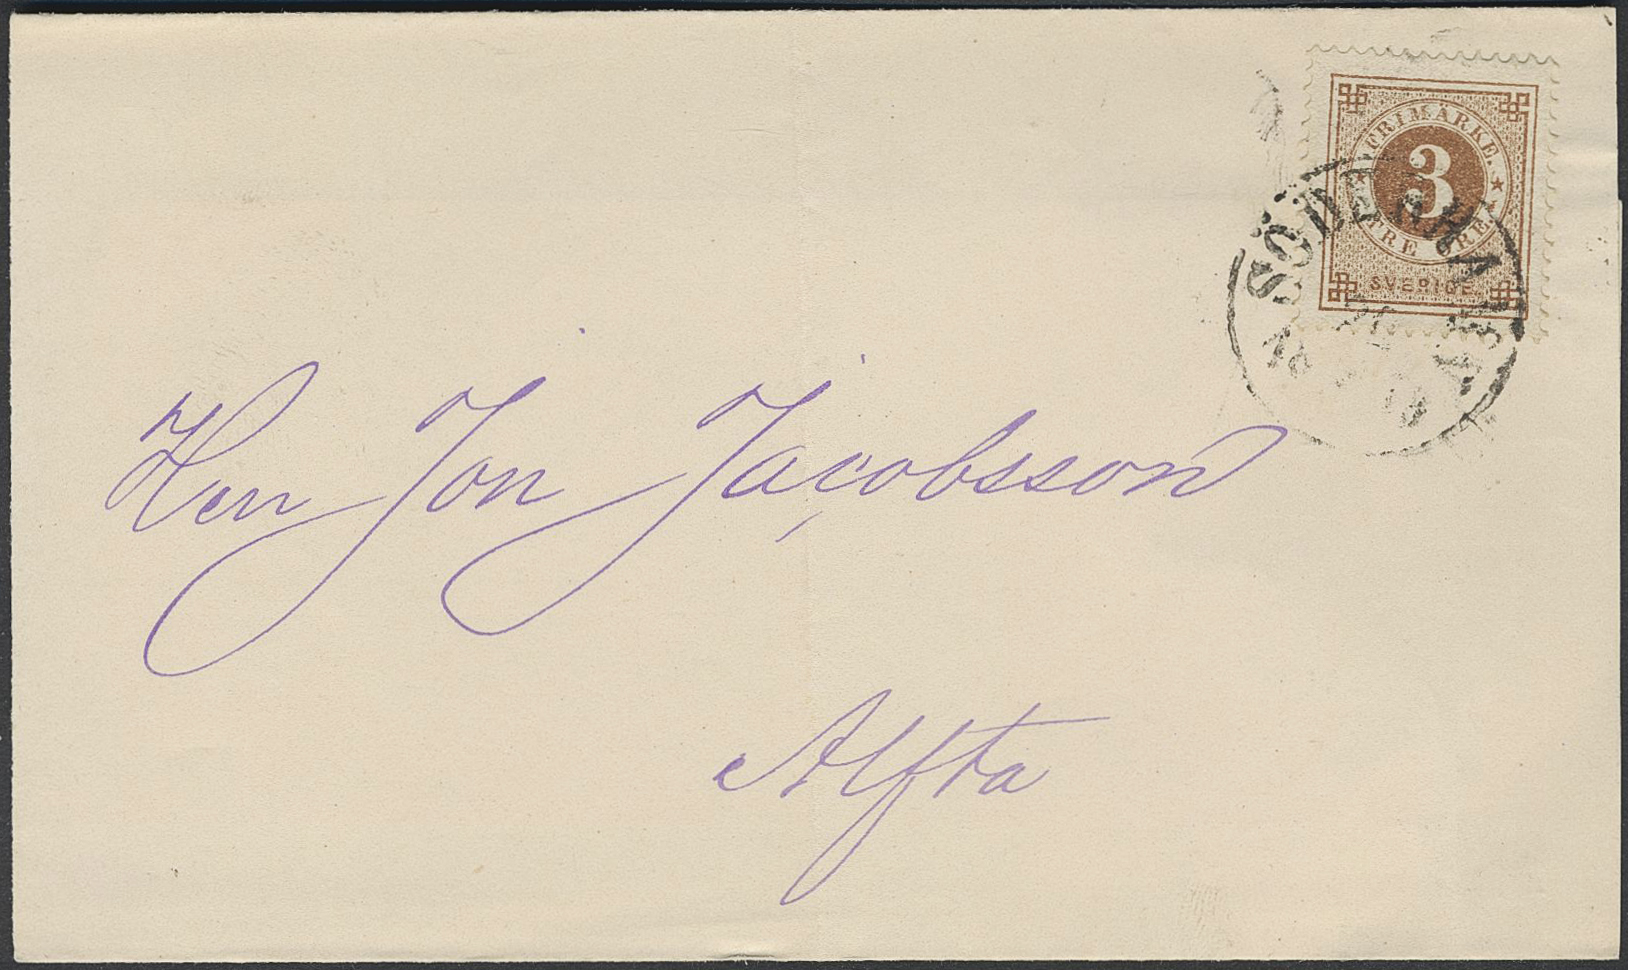 FRIMÄRKE.
3
TRE ÖRE
SVERIGE.
SÖDERHAMN
Herr Jon Jacobsson
Alfta